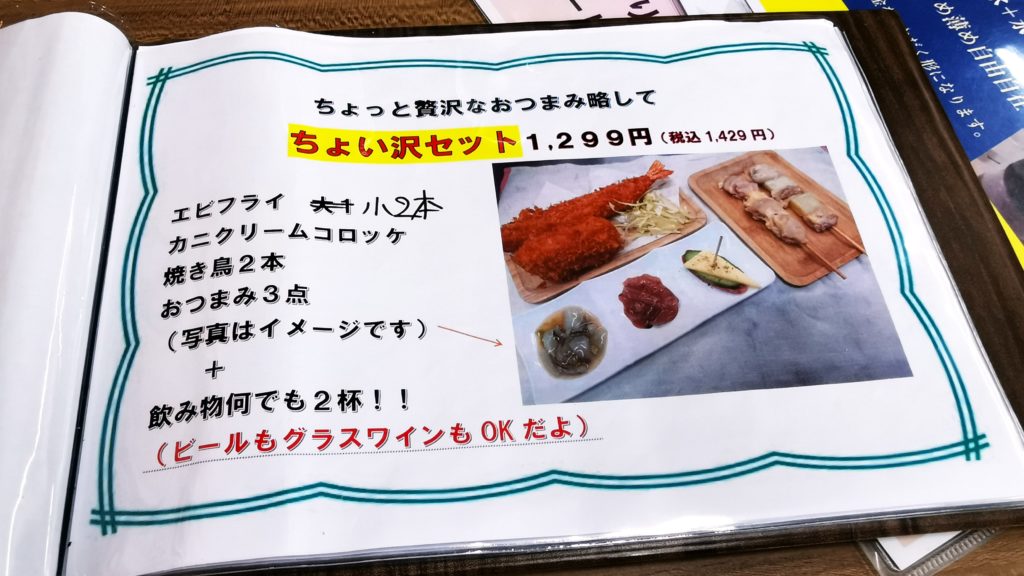 ちょっと贅沢なおつまみ略して
ちょい沢セット1,299円(税込1,429円)
エビフライ 小2本
カニクリームコロッケ
焼き鳥2本
おつまみ3点
(写真はイメージです)
+
飲み物何でも2杯!!
(ビールもグラスワインもOKだよ)
め薄め自由自在
だく形になります。